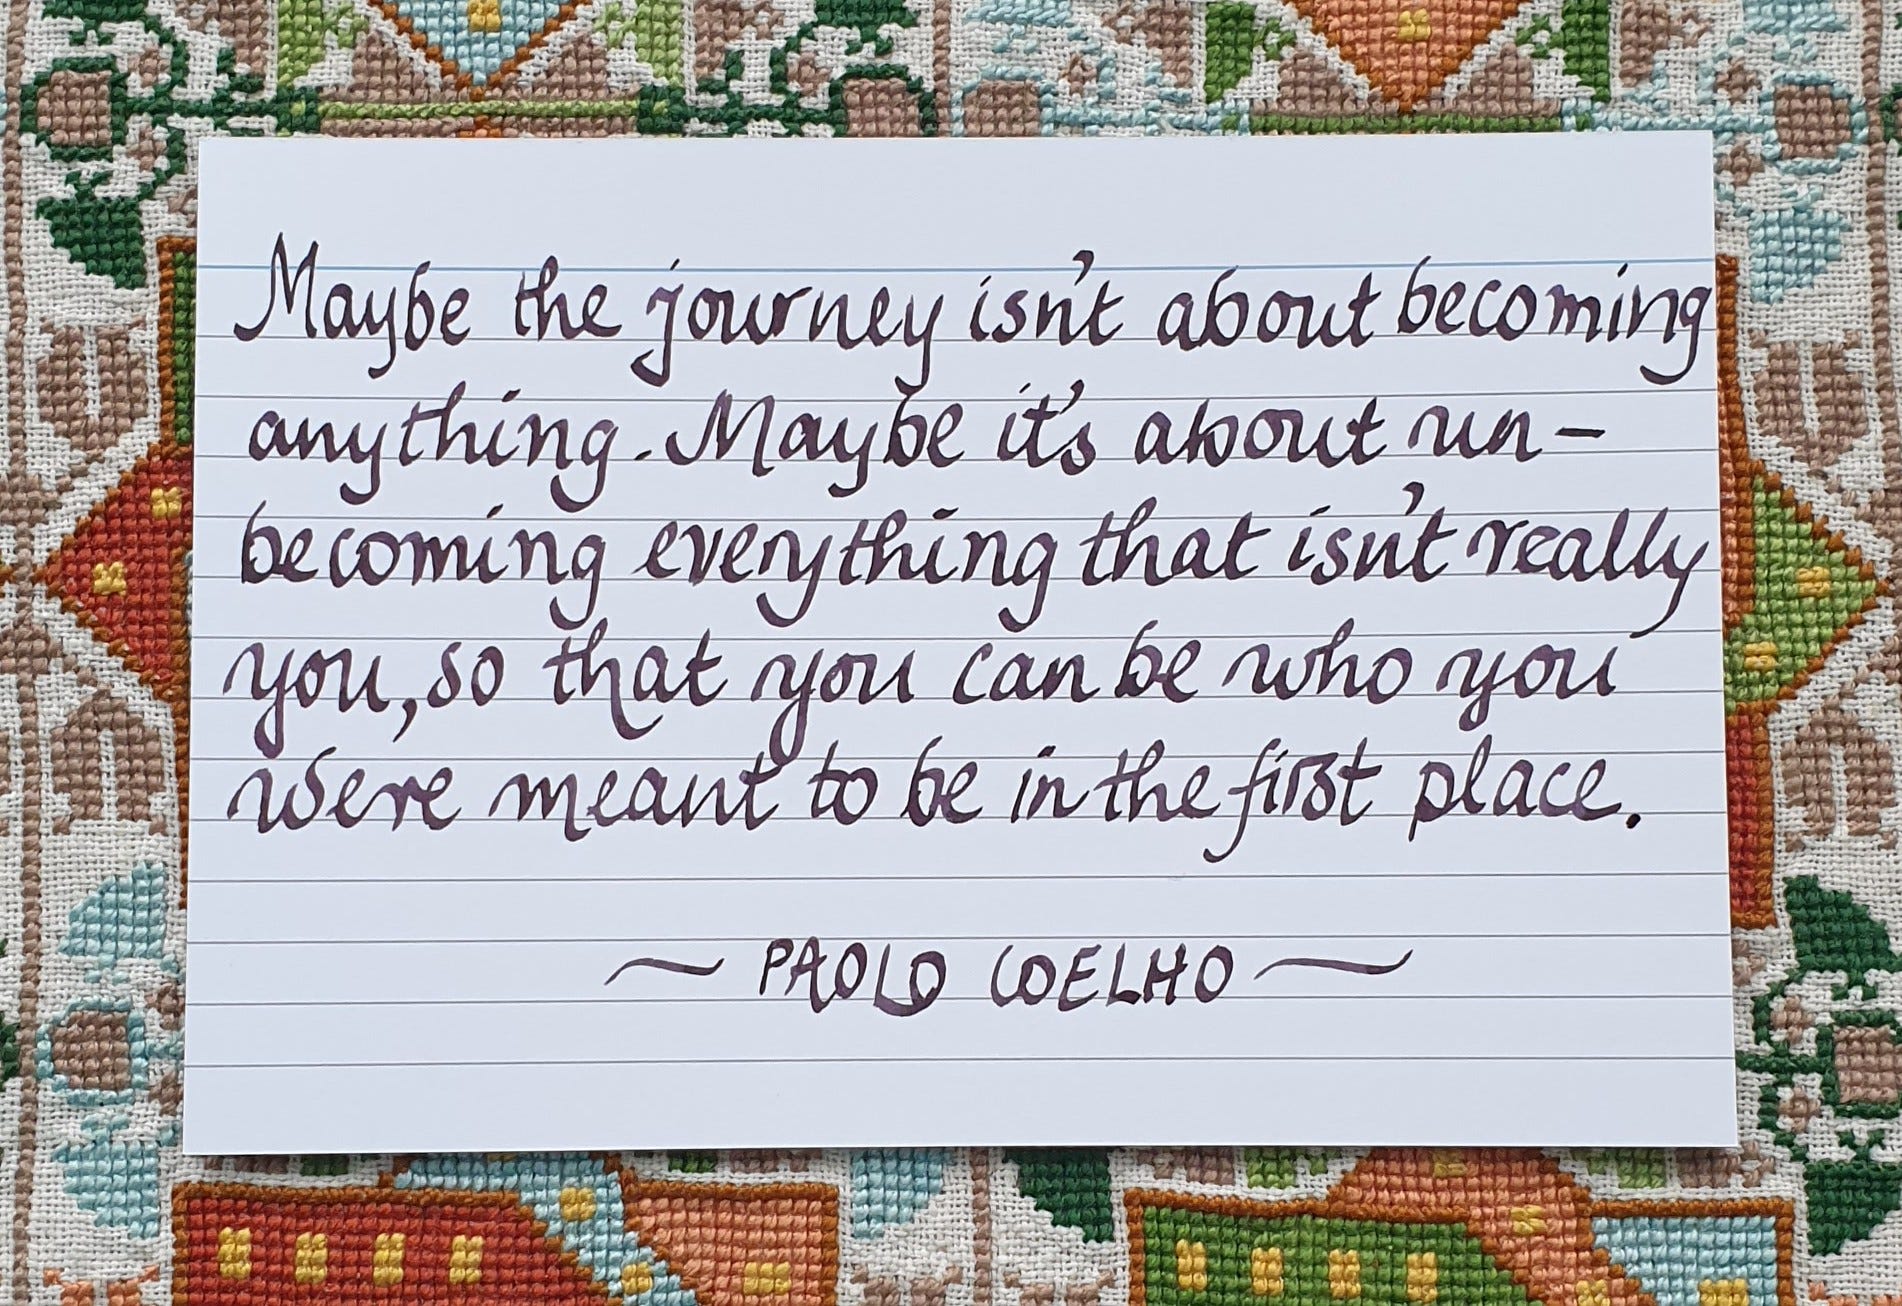 Maybe the journey isn't about becoming
anything. Maybe it's about un-
becoming everything that isn't really
you, so that you can be who you
were meant to be in the first place.
~ PAOLO COELHO ~